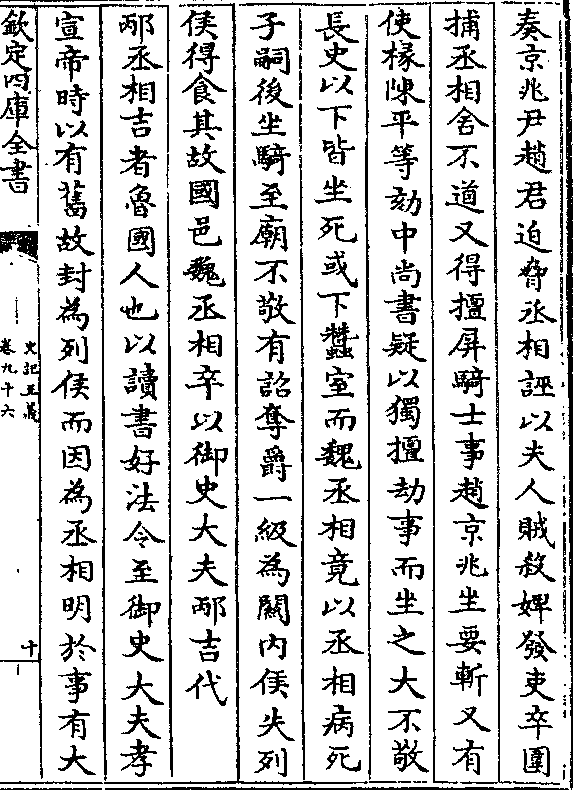 奏京兆尹趙君迫脅丞相誣以夫人賊殺婢發吏卒圍
捕丞相舍不道又得擅屏騎士事趙京兆坐要斬又有
使掾陳平等劾中尚書疑以獨擅劫事而坐之大不敬
長史以下皆坐死或下蠶室而魏丞相竟以丞相病死
子嗣後坐騎至廟不敬有詔奪爵一級為關內侯失列
侯得食其故國邑魏丞相卒以御史大夫邴吉代
邴丞相吉者魯國人也以讀書好法令至御史大夫孝
宣帝時以有舊故封為列侯而因為丞相明於事有大
欽定四庫全書
史記正義
卷九十六
十